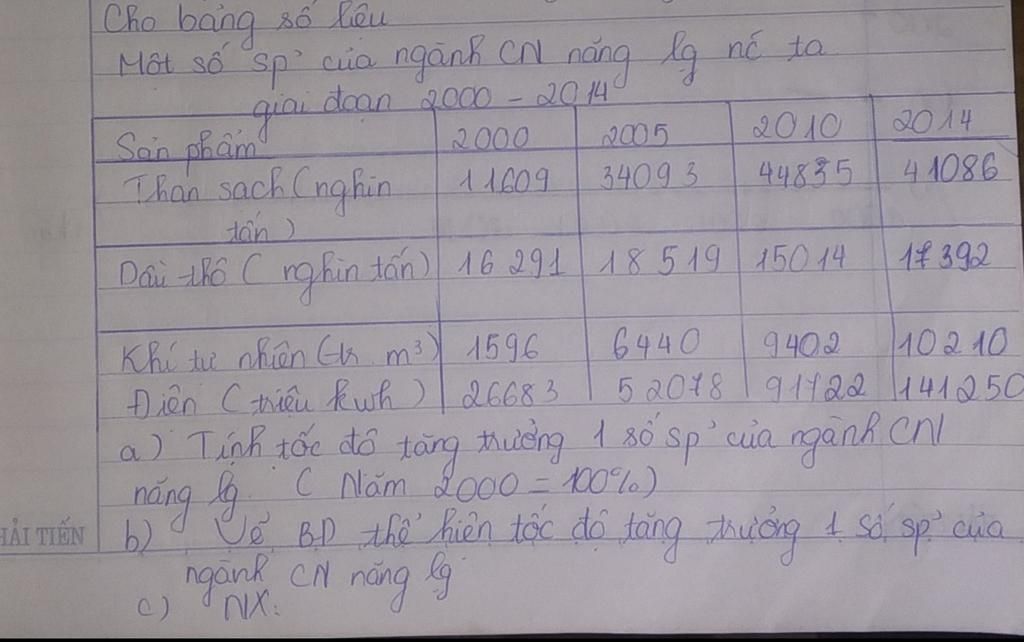 Cho bảng số liệu
Một số sp' của ngành CN năng lg nc ta
giai đoạn 2000 - 2014
Sản phẩm 2000 2005 2010 2014
Than sạch (nghìn 11609 34093 44835 41086
tấn)
Dầu thô (nghìn tấn) 16 291 18 519 15014 17 392
Khí tự nhiên (tr m³) 1596 6440 9402 10210
Điện (triệu kwh) 26683 52078 91722 141250
a) Tính tốc độ tăng trưởng 1 số sp' của ngành CN
năng lg. ( Năm 2000 = 100%)
HẢI TIẾN b) Vẽ BĐ thể hiện tốc độ tăng trưởng 1 số sp' của
ngành CN năng lg
c) NX.